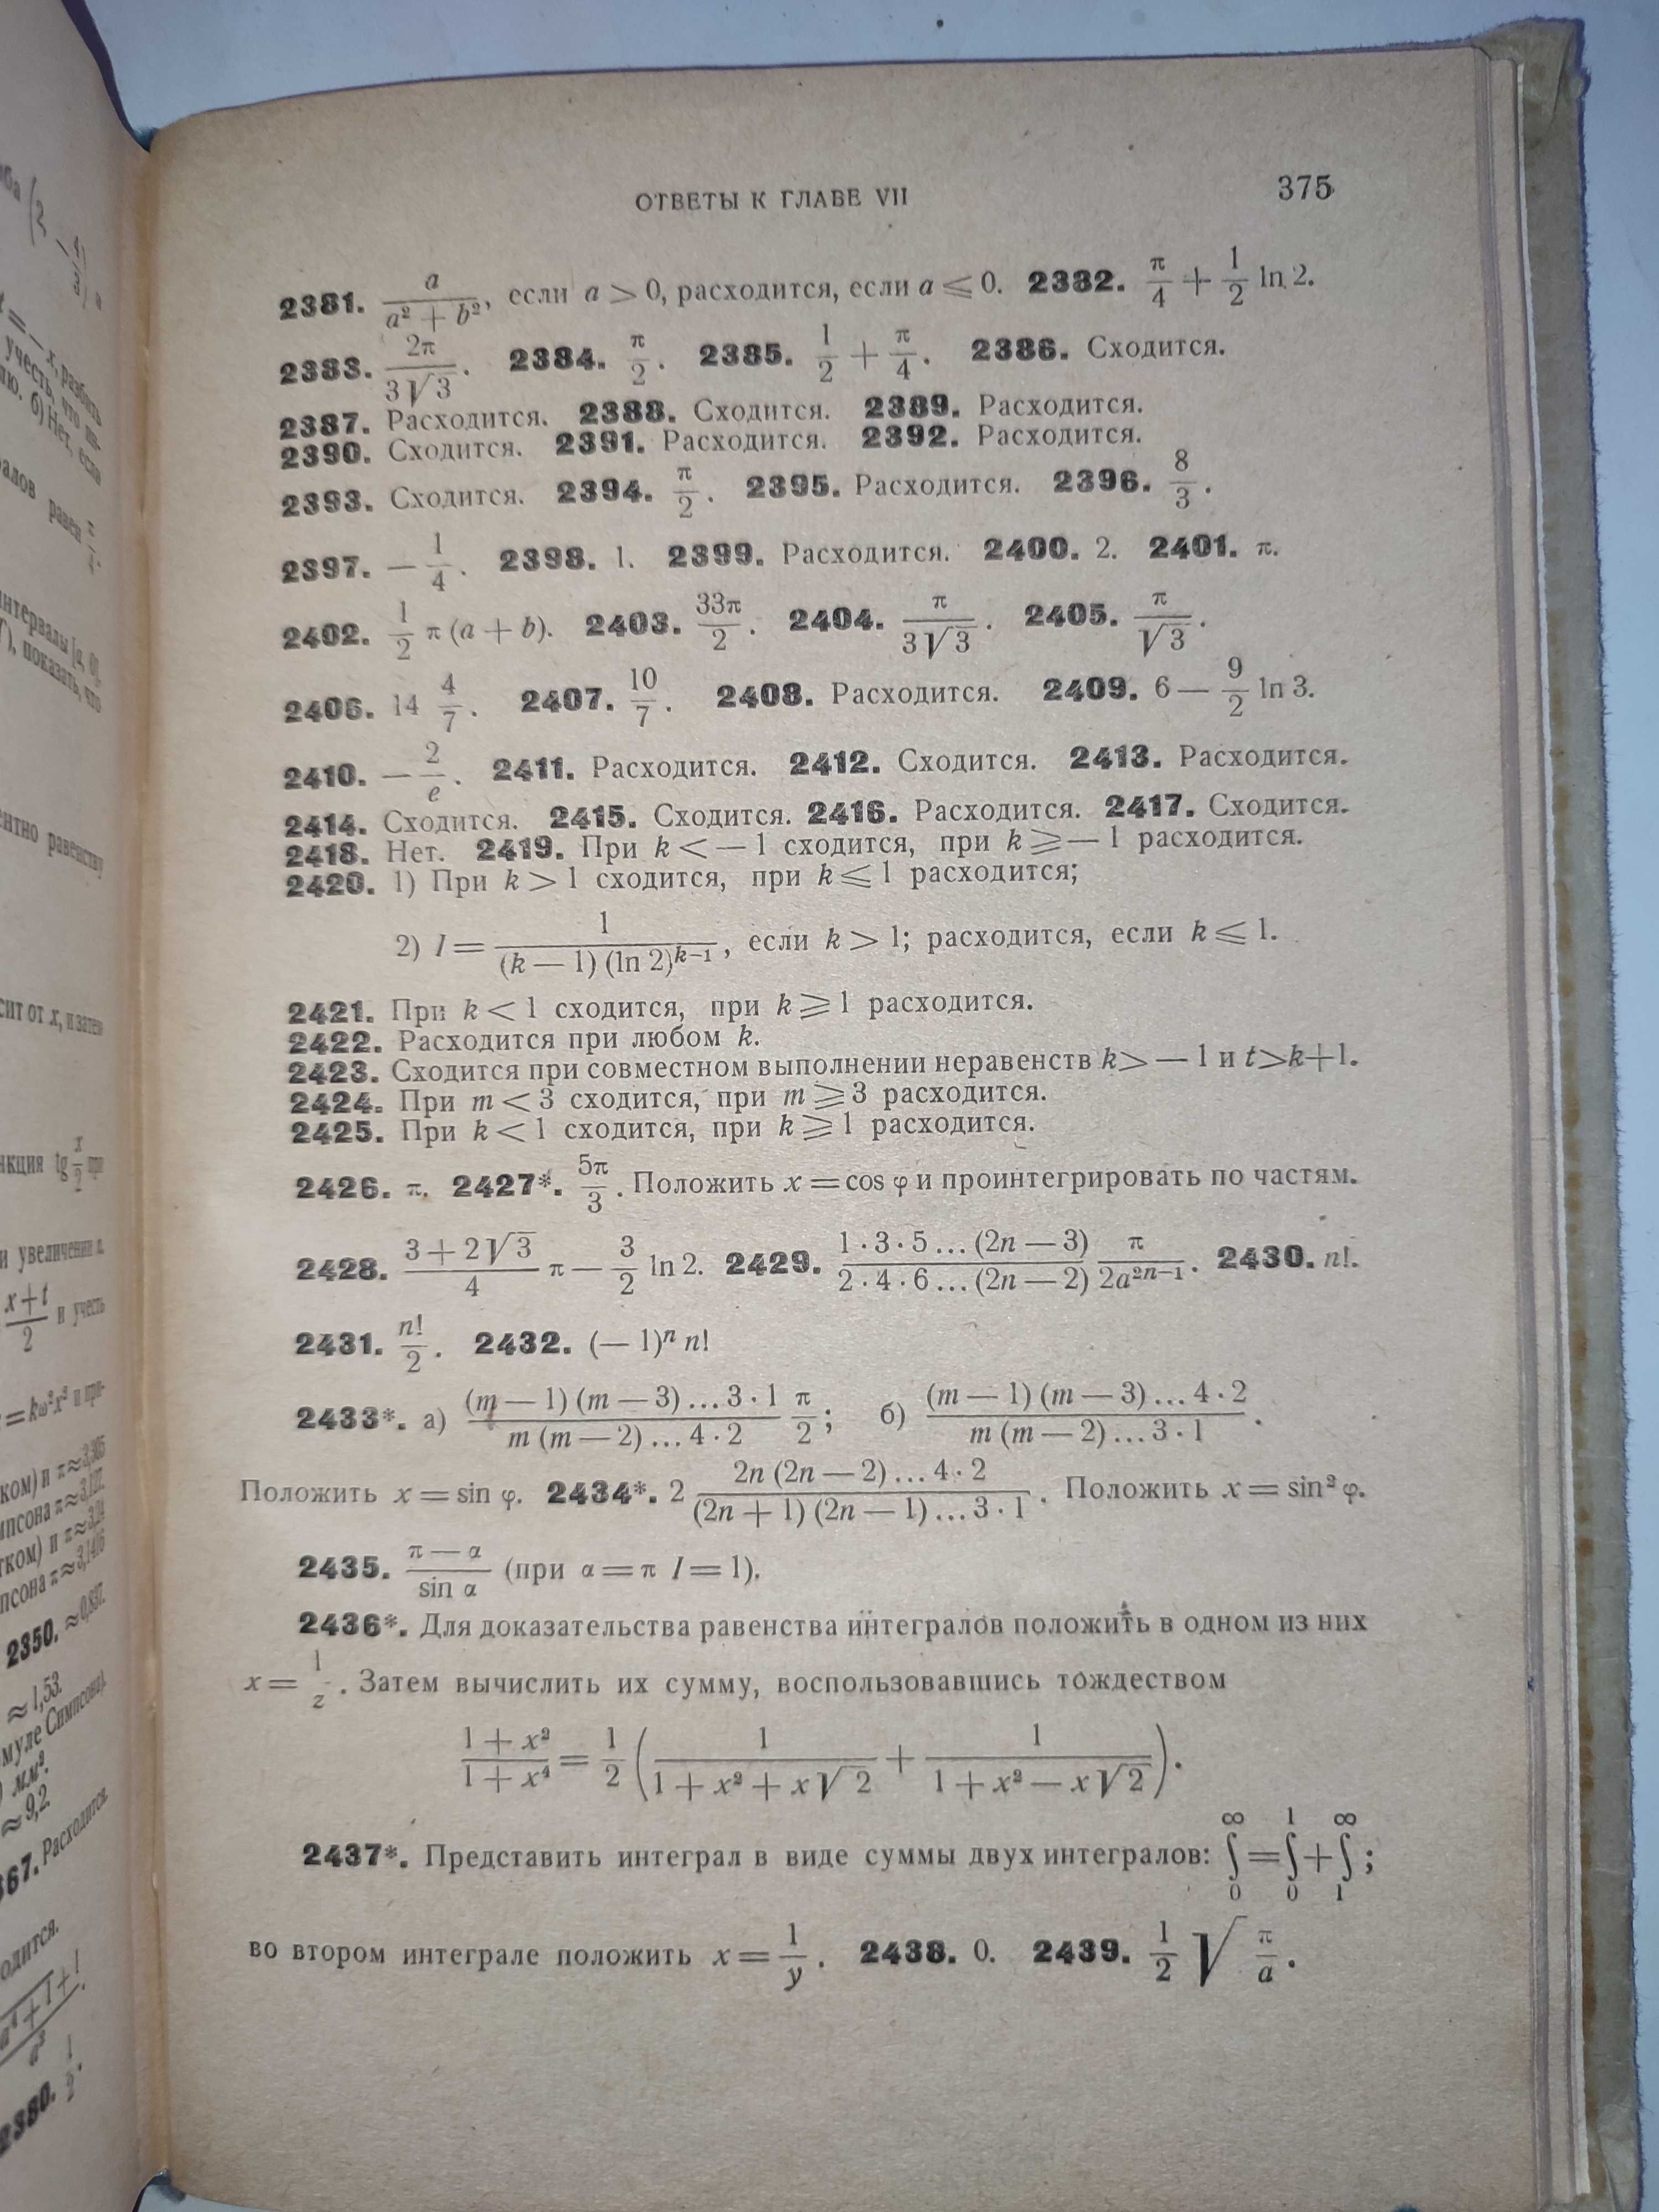 ОТВЕТЫ К ГЛАВЕ VII 375
2381. a/(a² + b²), если a > 0, расходится, если a ⩽ 0. 2382. π/4 + 1/2 ln 2.
2383. 2π/(3√3). 2384. π/2. 2385. 1/2 + π/4. 2386. Сходится.
2387. Расходится. 2388. Сходится. 2389. Расходится.
2390. Сходится. 2391. Расходится. 2392. Расходится.
2393. Сходится. 2394. π/2. 2395. Расходится. 2396. 8/3.
2397. — 1/4. 2398. 1. 2399. Расходится. 2400. 2. 2401. π.
2402. 1/2 π (a + b). 2403. 33π/2. 2404. π/(3√3). 2405. π/√3.
2406. 14 4/7. 2407. 10/7. 2408. Расходится. 2409. 6 — 9/2 ln 3.
2410. — 2/e. 2411. Расходится. 2412. Сходится. 2413. Расходится.
2414. Сходится. 2415. Сходится. 2416. Расходится. 2417. Сходится.
2418. Нет. 2419. При k < — 1 сходится, при k ⩾ — 1 расходится.
2420. 1) При k > 1 сходится, при k ⩽ 1 расходится;
2) I = 1/((k — 1) (ln 2)^(k–1)), если k > 1; расходится, если k ⩽ 1.
2421. При k < 1 сходится, при k ⩾ 1 расходится.
2422. Расходится при любом k.
2423. Сходится при совместном выполнении неравенств k > — 1 и t > k + 1.
2424. При m < 3 сходится, при m ⩾ 3 расходится.
2425. При k < 1 сходится, при k ⩾ 1 расходится.
2426. π. 2427*. 5π/3. Положить x = cos φ и проинтегрировать по частям.
2428. (3 + 2√3)/4 π — 3/2 ln 2. 2429. (1 · 3 · 5 ... (2n — 3))/(2 · 4 · 6 ... (2n — 2)) π/(2a^(2n–1)). 2430. n!.
2431. n!/2. 2432. (— 1)ⁿ n!
2433*. а) ((m — 1) (m — 3) ... 3 · 1)/(m (m — 2) ... 4 · 2) π/2; б) ((m — 1) (m — 3) ... 4 · 2)/(m (m — 2) ... 3 · 1).
Положить x = sin φ. 2434*. 2 (2n (2n — 2) ... 4 · 2)/((2n + 1) (2n — 1) ... 3 · 1). Положить x = sin² φ.
2435. (π — α)/sin α (при α = π I = 1).
2436*. Для доказательства равенства интегралов положить в одном из них
x = 1/z. Затем вычислить их сумму, воспользовавшись тождеством
(1 + x²)/(1 + x⁴) = 1/2 (1/(1 + x² + x√2) + 1/(1 + x² — x√2)).
2437*. Представить интеграл в виде суммы двух интегралов: ∫₀^∞ = ∫₀^1 + ∫₁^∞;
во втором интеграле положить x = 1/y. 2438. 0. 2439. 1/2 √(π/a).